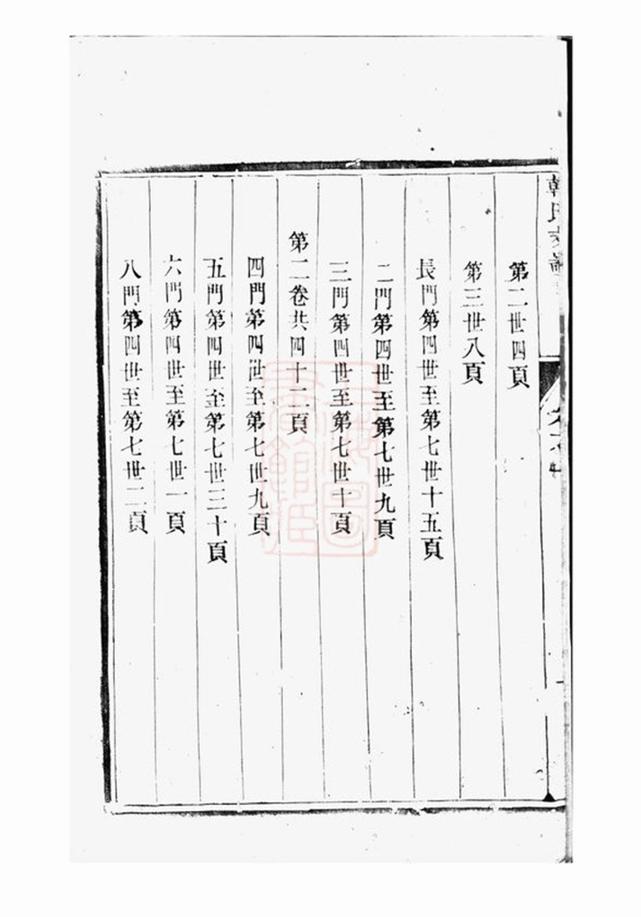 韓氏支譜
第二世四頁
第三世八頁
長門第四世至第七世十五頁
二門第四世至第七世九頁
三門第四世至第七世十頁
第二卷共四十二頁
四門第四世至第七世九頁
五門第四世至第七世三十頁
六門第四世至第七世一頁
八門第四世至第七世二頁